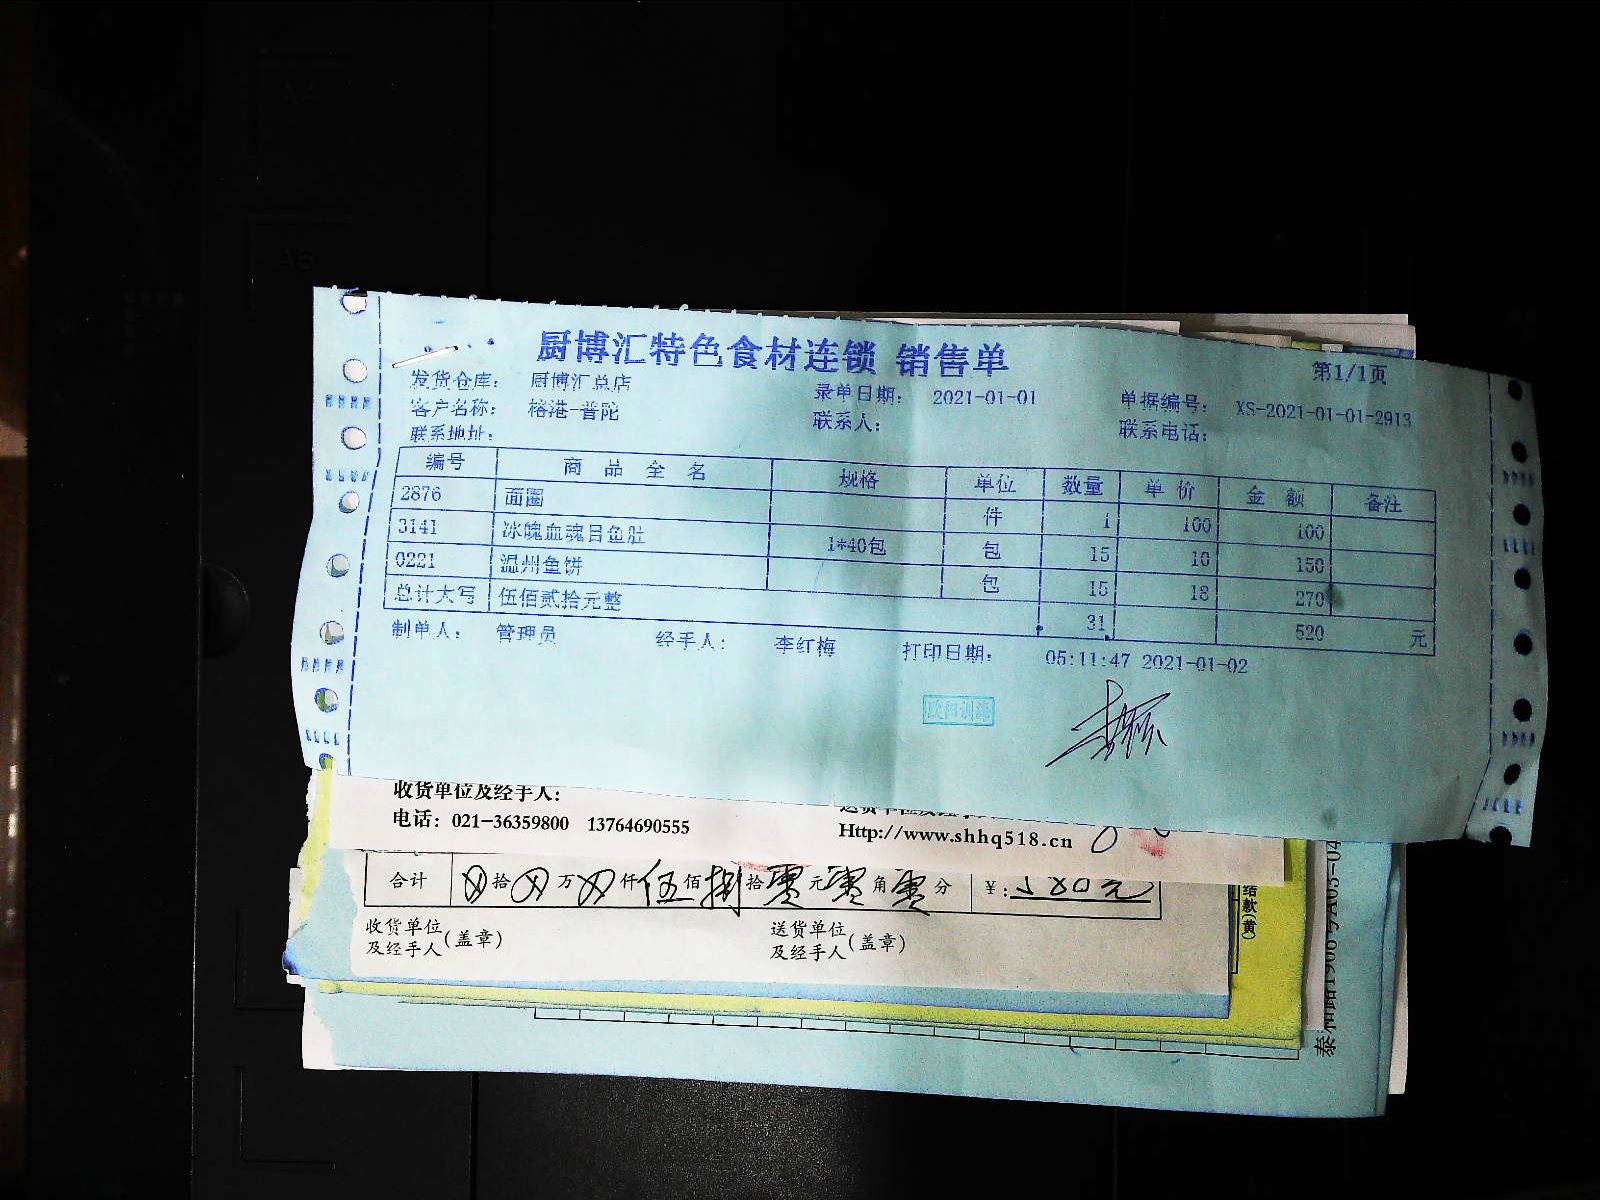 厨博汇特色食材连锁 销售单
第1/1页
发货仓库： 厨博汇总店 录单日期： 2021-01-01 单据编号： XS-2021-01-01-2913
客户名称： 榕港-普陀 联系人： 联系电话：
联系地址：
编号 商品全名 规格 单位 数量 单价 金额 备注
2876 面圈 件 1 100 100
3141 冰魄血魂目鱼肚 1*40包 包 15 10 150
0221 温州鱼饼 包 15 18 270
总计大写 伍佰贰拾元整 31 520 元
制单人： 管理员 经手人： 李红梅 打印日期： 05:11:47 2021-01-02
收货单位及经手人：
电话：021-36359800 13764690555
Http://www.shhq518.cn
合计 拾 万 仟 伍 佰 捌 拾 零 元 零 角 零 分 ￥：580元
收货单位及经手人(盖章) 送货单位及经手人(盖章)
结款(黄)